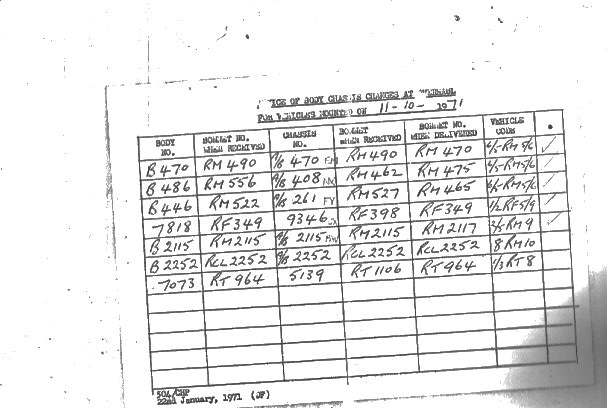 OF BODY CHASSIS CHANGES AT OVERHAUL
FOR VEHICLES MOUNTED ON 11-10-1971
BODY NO. BONNET NO. WHEN RECEIVED CHASSIS NO. BONNET WHEN RECEIVED BONNET NO. WHEN DELIVERED VEHICLE CODE
B470 RM490 A/B 470 RM490 RM470 6/5 RM5/6 ✓
B486 RM556 A/B 408 RM462 RM475 RM5/6 ✓
B446 RM522 A/B 261 FY RM527 RM465 RM5/6 ✓
7818 RF349 9346 RF398 RF349 1/2 RF5/9 ✓
B2115 RM2115 A/B 2115 RM2115 RM2117 3/5 RM9 ✓
B2252 RCL2252 A/B 2252 RCL2252 RCL2252 8 RM10
7073 RT964 5139 RT1106 RT964 1/3 RT8
504/CHP
22nd January, 1971 (JP)